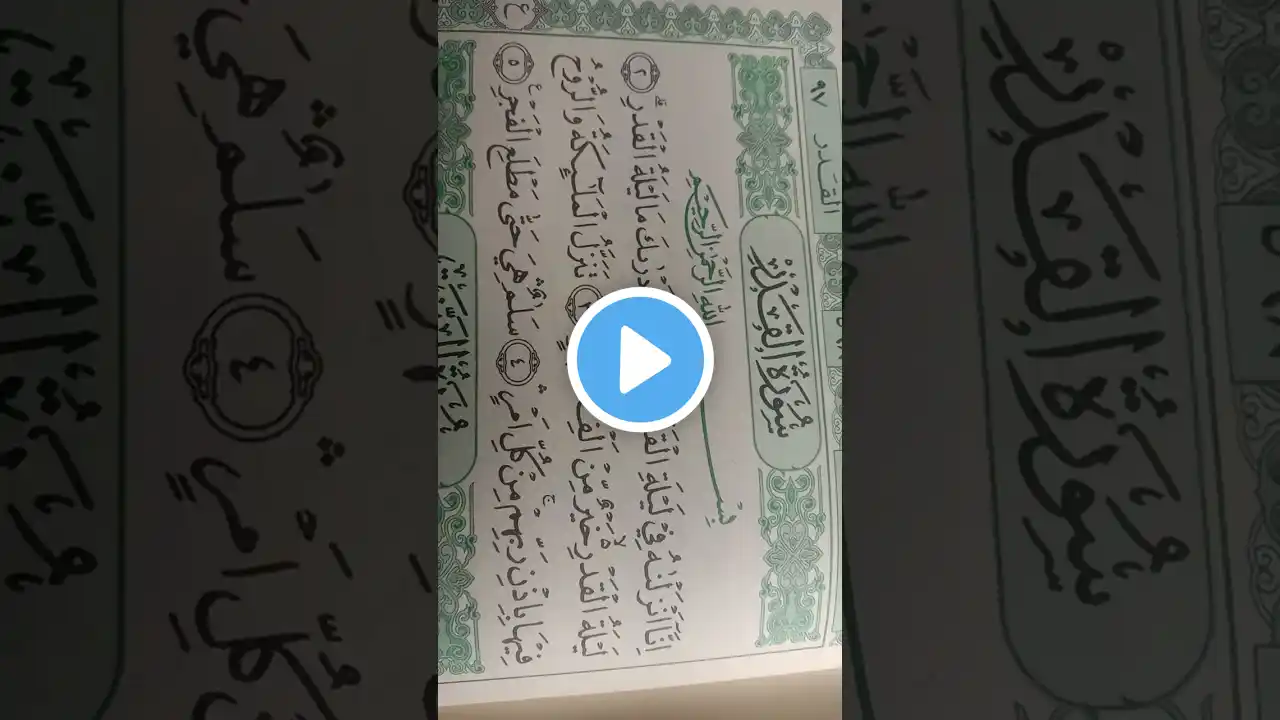 القدر ٩٧
سُوْرَةُ الْقَدْرِ
بِسْمِ اللّٰهِ الرَّحْمٰنِ الرَّحِيْمِ
اِنَّآ اَنْزَلْنٰهُ فِيْ لَيْلَةِ مَا لَيْلَةُ الْقَدْرِۗ ٢
لَيْلَةُ الْقَدْرِ ەۙ خَيْرٌ مِّنْ اَلْفِ تَنَزَّلُ الْمَلٰۤىِٕكَةُ وَالرُّوْحُ
فِيْهَا بِاِذْنِ رَبِّهِمْۚ مِنْ كُلِّ اَمْرٍۛ ٤ سَلٰمٌ ۛهِيَ حَتّٰى مَطْلَعِ الْفَجْرِ ࣖ ٥